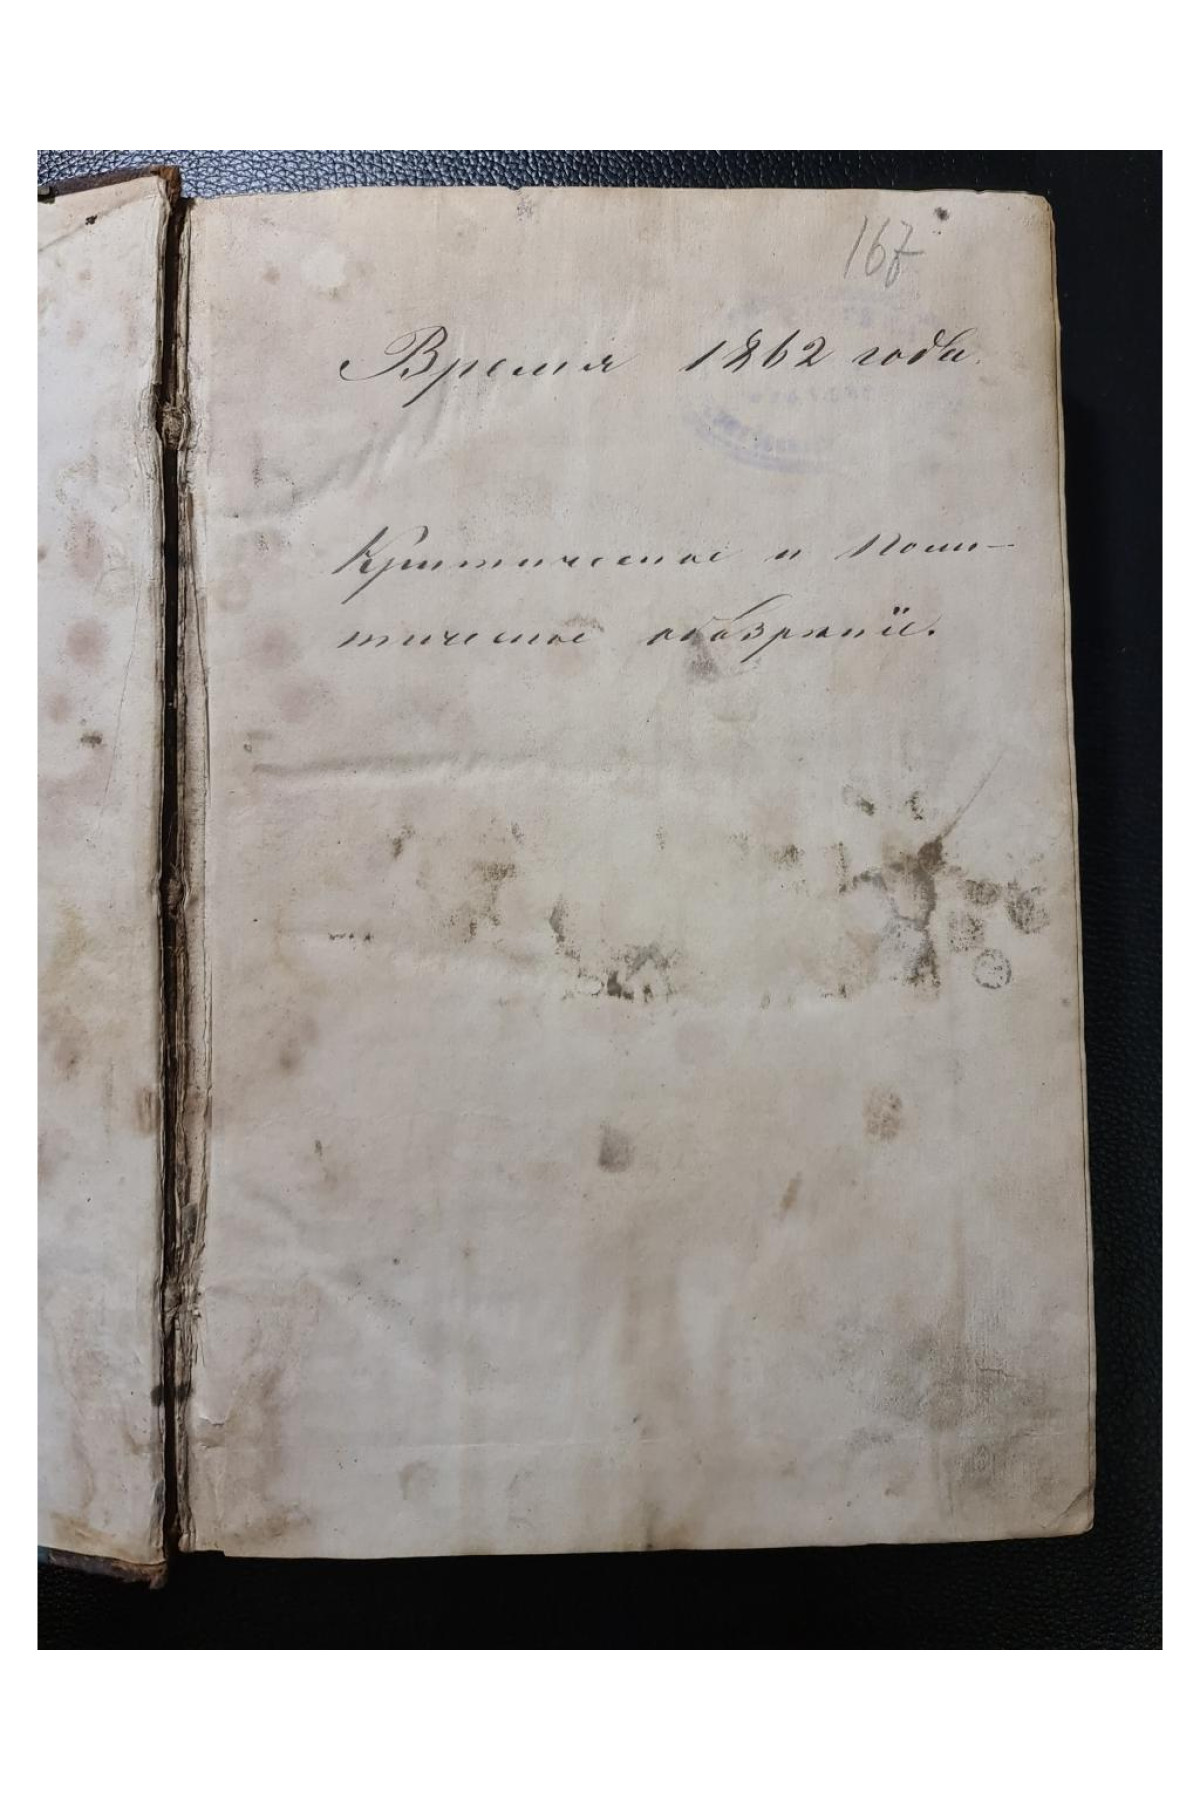 167
Время 1862 года.
Критическое и Поли-
тическое обозрѣніе.